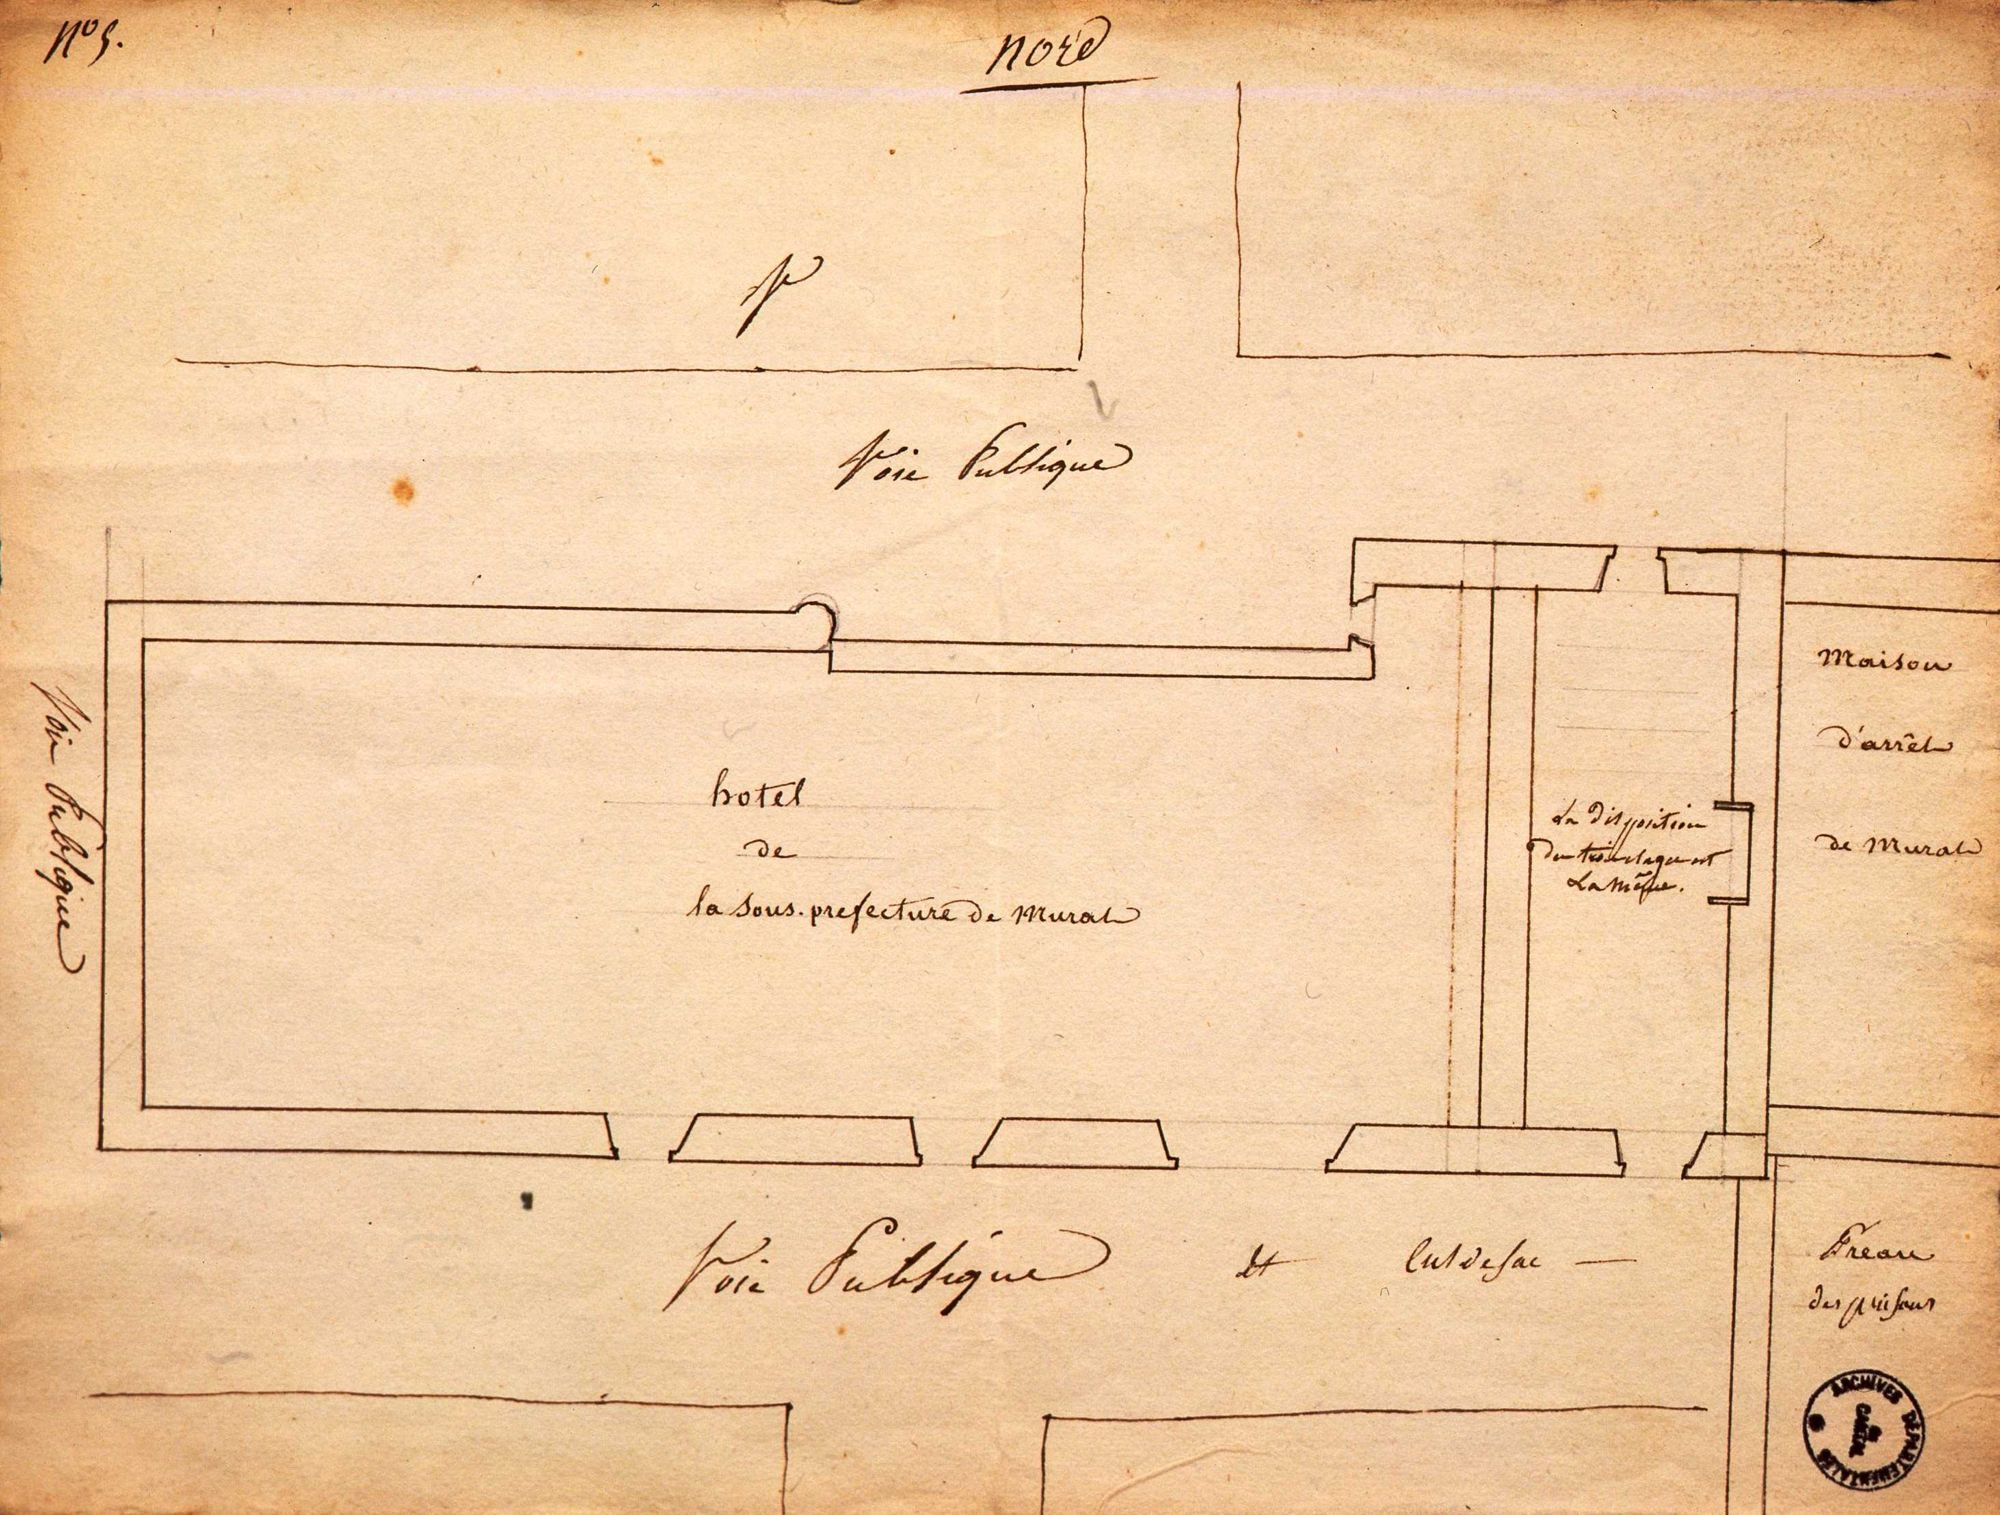 N° 5.
nord
Voie Publique
Voie Publique
hotel
de
la sous-prefecture de Murat
La Disposition
du est
La même.
Maison
d'arrêt
de Murat
Voie Publique et Cul de sac —
Preau
des prisons
ARCHIVES DÉPARTEMENTALES
du
CANTAL